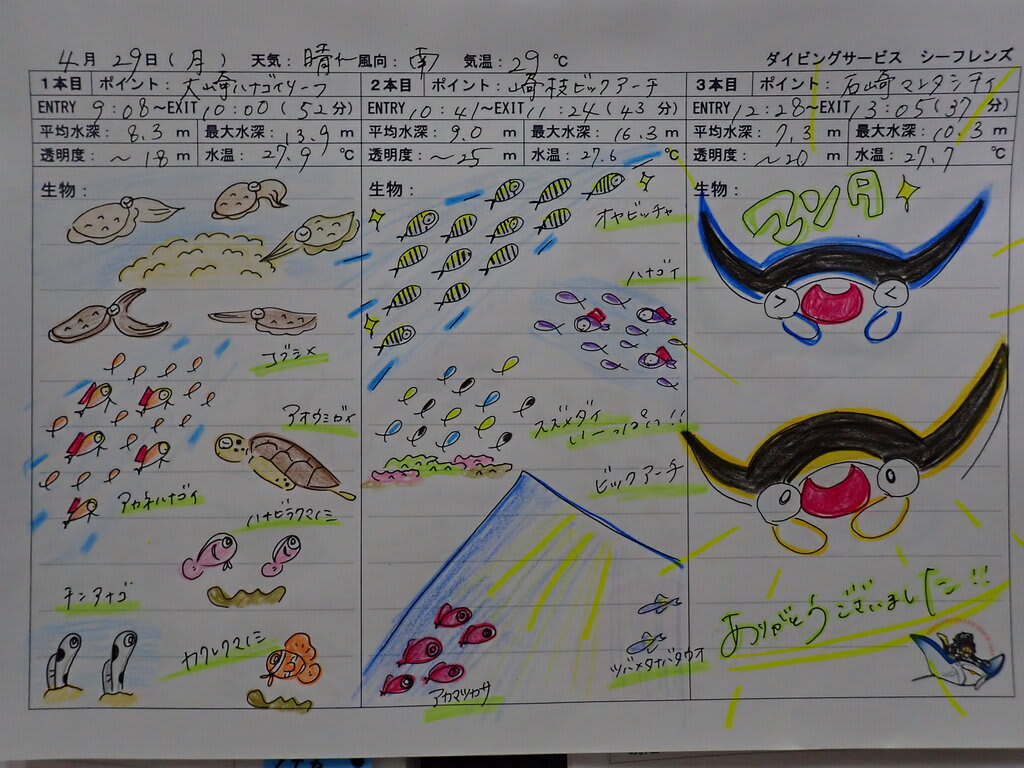 4月29日(月) 天気:晴れ 風向:南 気温:29℃ ダイビングサービス シーフレンズ
1本目 ポイント:大崎ハナゴイリーフ
ENTRY 9:08~EXIT 10:00(52分)
平均水深: 8.3 m 最大水深: 13.9 m
透明度: ~18 m 水温: 27.9 ℃
生物:
コブシメ
アオウミガメ
アカネハナゴイ
ハナビラクマノミ
チンアナゴ
カクレクマノミ
2本目 ポイント:崎枝ビックアーチ
ENTRY 10:41~EXIT 11:24(43分)
平均水深: 9.0 m 最大水深: 16.3 m
透明度: ~25 m 水温: 27.6 ℃
生物:
オヤビッチャ
ハナゴイ
スズメダイ
いーっぱい!!
ビックアーチ
ツバメタナバタウオ
アカマツカサ
3本目 ポイント:石崎マンタシティ
ENTRY 12:28~EXIT 13:05(37分)
平均水深: 7.3 m 最大水深: 10.3 m
透明度: ~20 m 水温: 27.7 ℃
生物:
マンタ
ありがとうございました!!